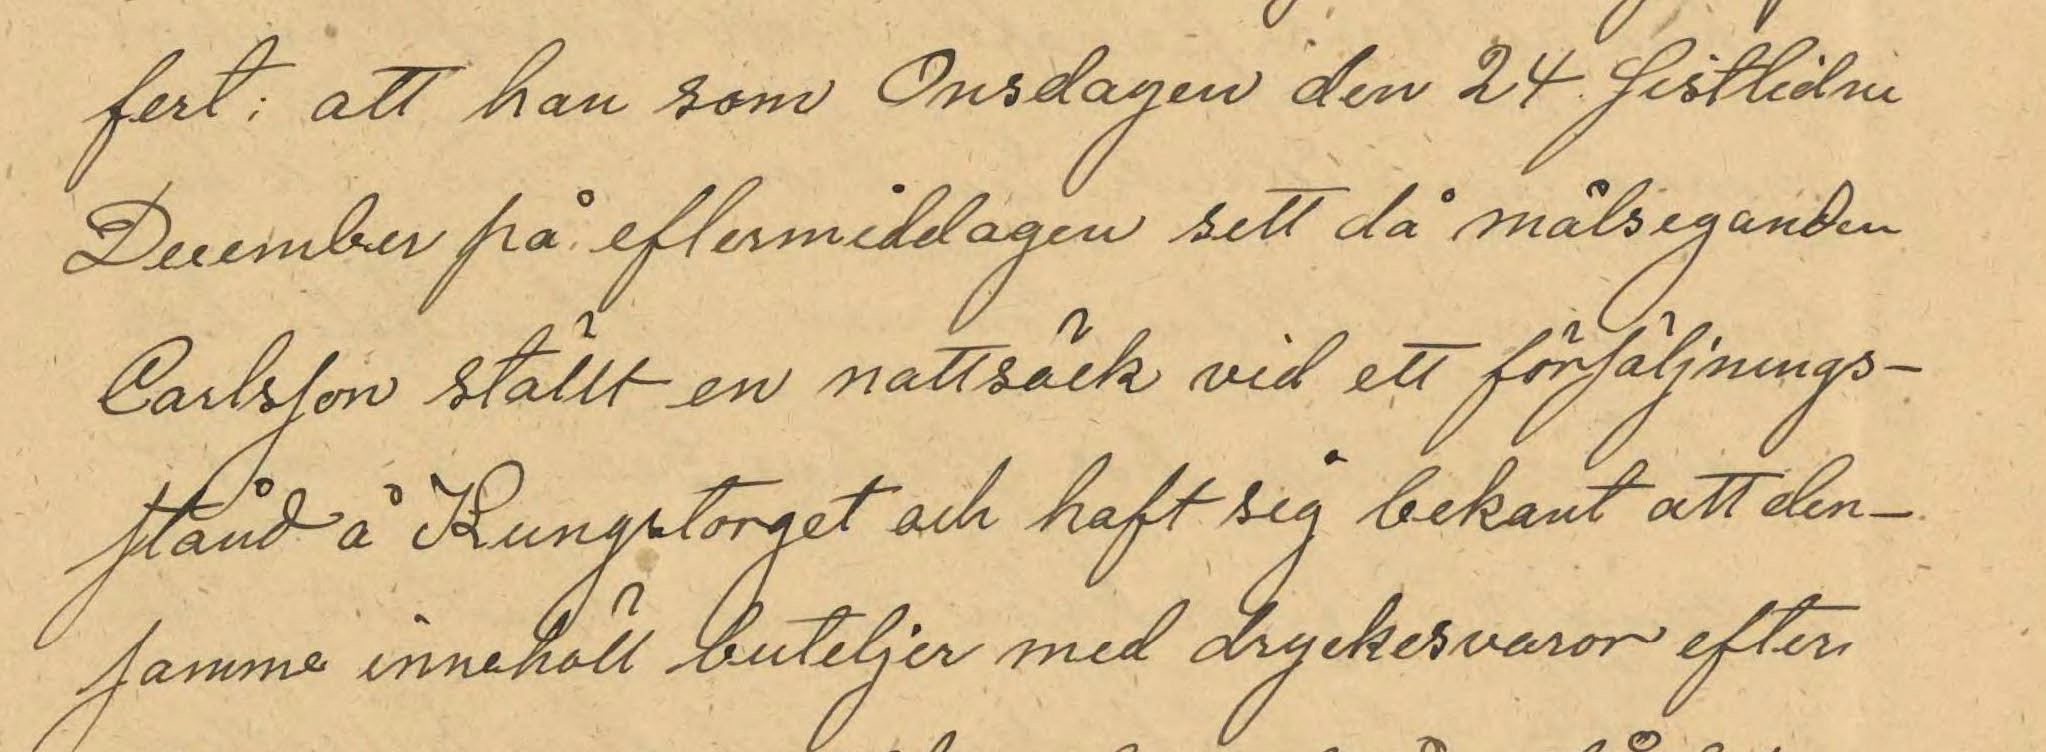 fert: att han som Onsdagen den 24 sistlidne
December på eftermiddagen sett då målseganden
Carlsson ställt en nattsäck vid ett försäljnings-
stånd å Kungstorget och haft sig bekant att den-
samma innehöll buteljer med dryckesvaror efter